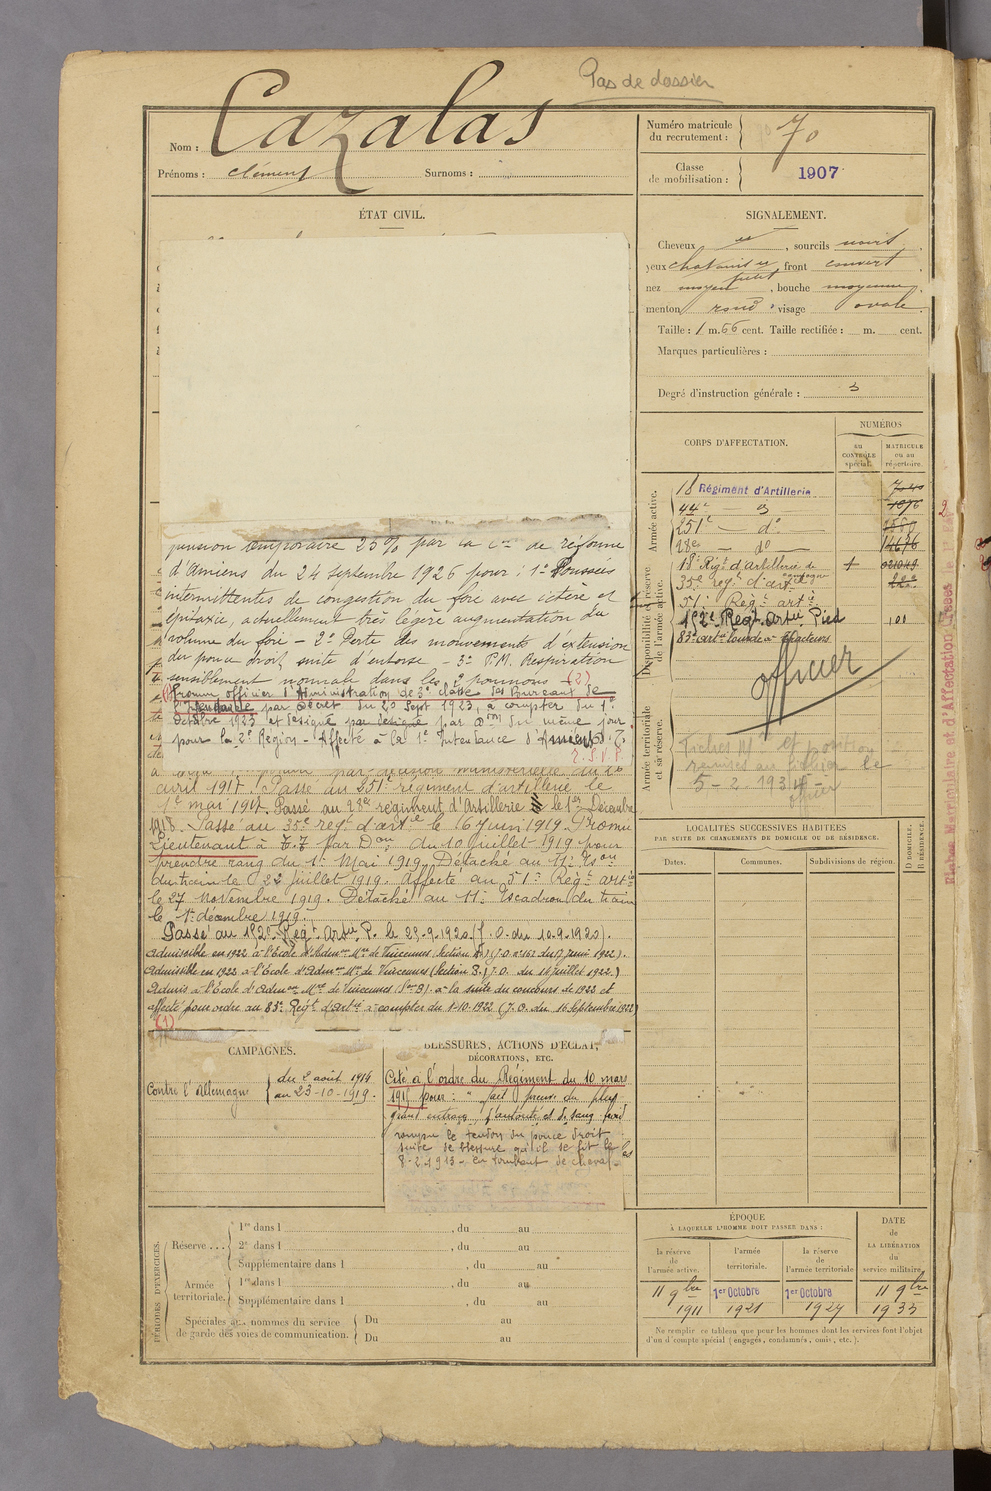 Pas de dossier
Nom : Cazalas
Prénoms : Clément Surnoms :
Numéro matricule du recrutement : 70
Classe de mobilisation : 1907
ÉTAT CIVIL.
SIGNALEMENT.
Cheveux , sourcils noirs
yeux front couvert
nez moyen , bouche moyenne
menton rond visage ovale
Taille : 1 m. 66 cent. Taille rectifiée : m. cent.
Marques particulières :
Degré d'instruction générale : 3
CORPS D'AFFECTATION.
NUMÉROS
au contrôle spécial.
matricule ou au répertoire.
Armée active.
18 Régiment d'Artillerie
44e — do
251e — do
28e — do 14636
Disponibilité et réserve de l'armée active.
18e Rigt d'Artillerie de campagne
35e reg. d'art.
51e Regt arte
182e Regt Artie Pied 101
83e artie lourde à tracteurs
officier
Armée territoriale et sa réserve.
Fiches M. et position
remises au fichier le
5-2.1934
officier
pension temporaire 25% par la Con de réforme
d'Amiens du 24 septembre 1926 pour : 1° Poussées
intermittentes de congestion du foie avec ictère et
épistaxis, actuellement très légère augmentation du
volume du foie - 2° Perte des mouvements d'extension
du pouce droit, suite d'entorse - 3° P.M. Respiration
sensiblement normale dans les 2 poumons (2)
(1) Promu officier d'Administration de 3e classe des Bureaux de
l'Intendance par Décret du 20 Sept 1923, à compter du 1er
Octobre 1923 et désigné par Don du même jour
pour la 2e Région - Affecté à la 1e Intendance d'Amiens
T.S.V.P.
avril 1917. Passé au 251e régiment d'artillerie le
1er mai 1917. Passé au 28e régiment d'Artillerie le 1er Décembre
1918. Passé au 35e reg. d'artie le 16 Juin 1919. Promu
Lieutenant à T.T. par Don du 10 Juillet 1919 pour
prendre rang du 1er Mai 1919. Détaché au 11e Eson
du train le 22 juillet 1919. Affecté au 51e Regt artie
le 27 novembre 1919. Détaché au 11e Escadron du train
le 1er decembre 1919.
Passé au 182e Regt Artie P. le 29-9-1920 (J.O. du 10-9-1920).
Admissible en 1922 à l'Ecole d'Admon Mre de Vincennes (Section
Admissible en 1922 à l'Ecole d'Admon Mre de Vincennes (Section B.) J.O. du 14 juillet 1922.)
Admis à l'Ecole d'Admon Mre de Vincennes (Son B). à la suite du concours de 1922 et
affecté pour ordre au 83e Regt d'Artie à compter du 1-10-1922 (J.O. du 16 Septembre 1922)
(1)
CAMPAGNES.
Contre l'Allemagne { du 2 août 1914
au 23-10-1919.
BLESSURES, ACTIONS D'ÉCLAT,
DÉCORATIONS, ETC.
Cité à l'ordre du Régiment du 10 mars
1915 pour : " fait preuve du plus
grand entrain, d'autorité et de sang froid
rompu le tendon du pouce droit
suite de blessure qu'il se fit le
8-2-1913 - en tombant de cheval
LOCALITÉS SUCCESSIVES HABITÉES
PAR SUITE DE CHANGEMENTS DE DOMICILE OU DE RÉSIDENCE.
Dates. Communes. Subdivisions de région.
D DOMICILE.
R RÉSIDENCE.
PÉRIODES D'EXERCICES.
Réserve ... 1re dans l , du au
2e dans l , du au
Supplémentaire dans l , du au
Armée territoriale. 1re dans l , du au
Supplémentaire dans l , du au
Spéciales aux hommes du service de garde des voies de communication. Du au
Du au
ÉPOQUE
À LAQUELLE L'HOMME DOIT PASSER DANS :
la réserve de l'armée active.
l'armée territoriale.
la réserve de l'armée territoriale
DATE de LA LIBÉRATION du service militaire.
11 9bre 1911
1er Octobre 1921
1er Octobre 1927
11 9bre 1933
Ne remplir ce tableau que pour les hommes dont les services font l'objet
d'un d'compte spécial (engagés, condamnés, omis, etc.).